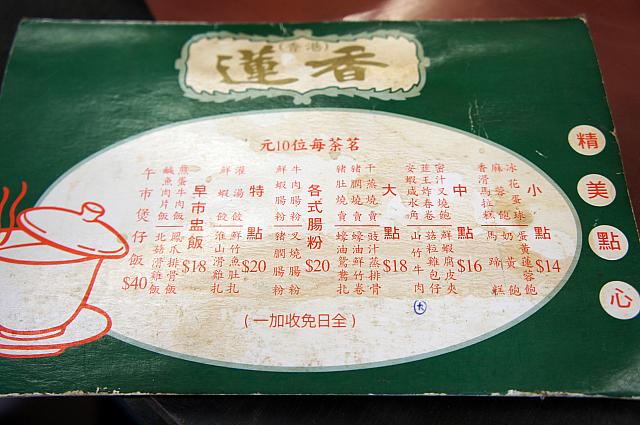 (香港)
蓮香
精美點心
茗茶每位10元
小點 $14
冰花蛋球
麻蓉飽
香滑馬拉糕
蛋黃蓮蓉飽
奶黃飽
馬蹄糕
中點 $16
蜜汁叉燒飽
韮王炸春卷
安蝦咸水角
鮮蝦腐皮夾
菇粒雞包仔
山竹牛肉
大點 $18
干蒸燒賣
豬膶燒賣
豬肚燒賣
豉汁蒸排骨
蠔油鮮竹卷
蠔油鴛鴦扎
各式腸粉 $20
牛肉腸粉
鮮蝦腸粉
叉燒腸粉
豬膶腸粉
特點 $20
灌湯餃
鮮蝦餃
鮮竹魚肚扎
淮山雞扎
早市盅飯 $18
煎蛋牛肉飯
鹹魚肉片飯
鳳爪排骨飯
北菇滑雞飯
午市煲仔飯 $40
(全日免收加一)